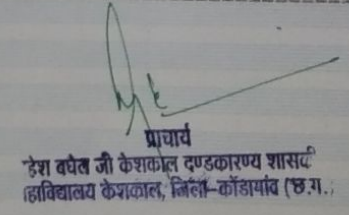 प्राचार्य
डेश बघेल जी केशकाल दण्डकारण्य शासकी
हाविद्यालय केशकाल, जिला-कोंडागांव (छ.ग.